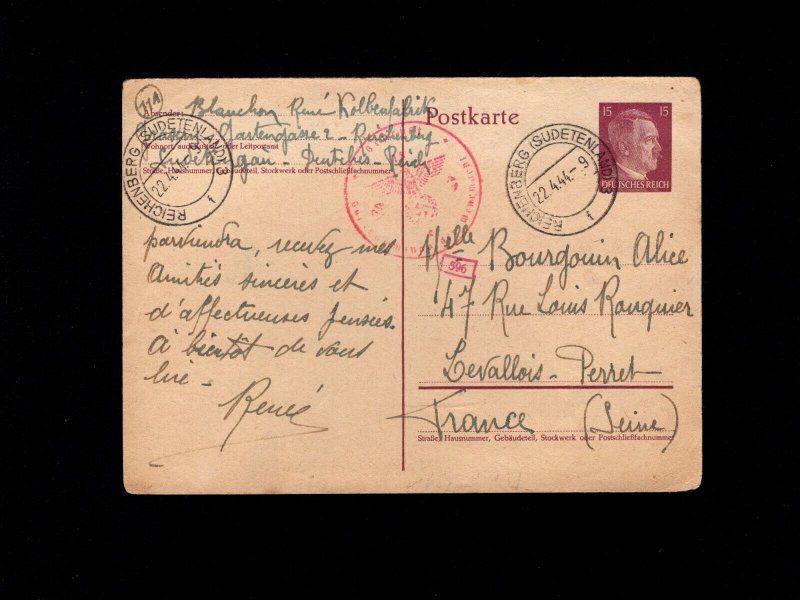 111
Absender:
Blanchon René Kolbenfabrik
Gartengasse 2 - Reichenberg
Wohnort, auch Zustell- oder Leitpostamt
Sudetengau - Deutsches-Reich
Straße, Hausnummer, Gebäudeteil, Stockwerk oder Postschließfachnummer
REICHENBERG (SUDETENLAND) 3
22.4.44.-9
f
parviendra, recevez mes
Amitiés sincères et
d'affectueuses pensées.
A bientôt de vous
lire -
René
Postkarte
15 15
DEUTSCHES REICH
REICHENBERG (SUDETENLAND) 3
22.4.44.-9
f
596
Melle Bourgouin Alice
47 Rue Louis Rouquier
Levallois-Perret
France (Seine)
Straße, Hausnummer, Gebäudeteil, Stockwerk oder Postschließfachnummer